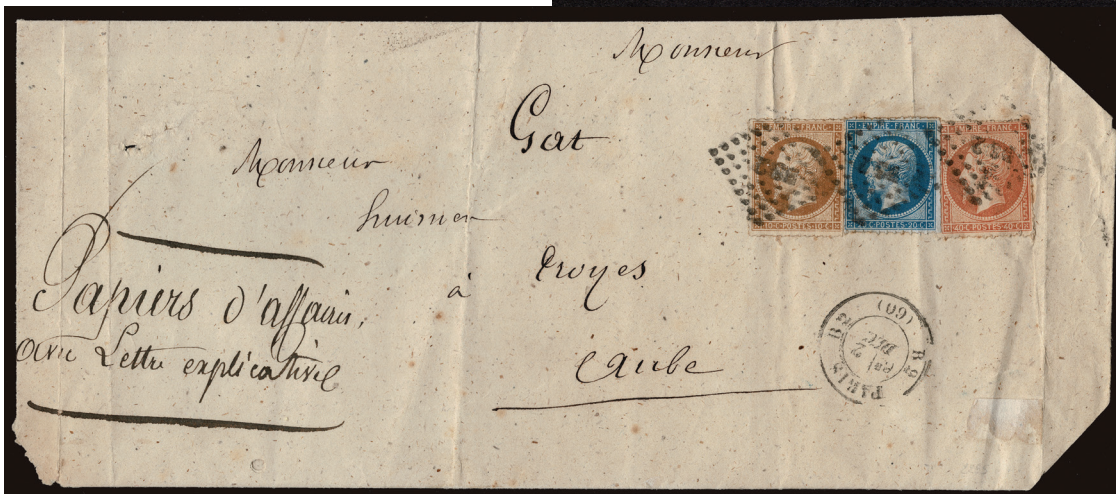 Monsieur
Gat
Monsieur
huissier
à Troyes
Aube
Papiers d'affaires,
avec Lettre explicative
EMPIRE FRANC
10 C POSTES 10 C
EMPIRE FRANC
20 C POSTES 20 C
EMPIRE FRANC
40 C POSTES 40 C
PARIS
(60)